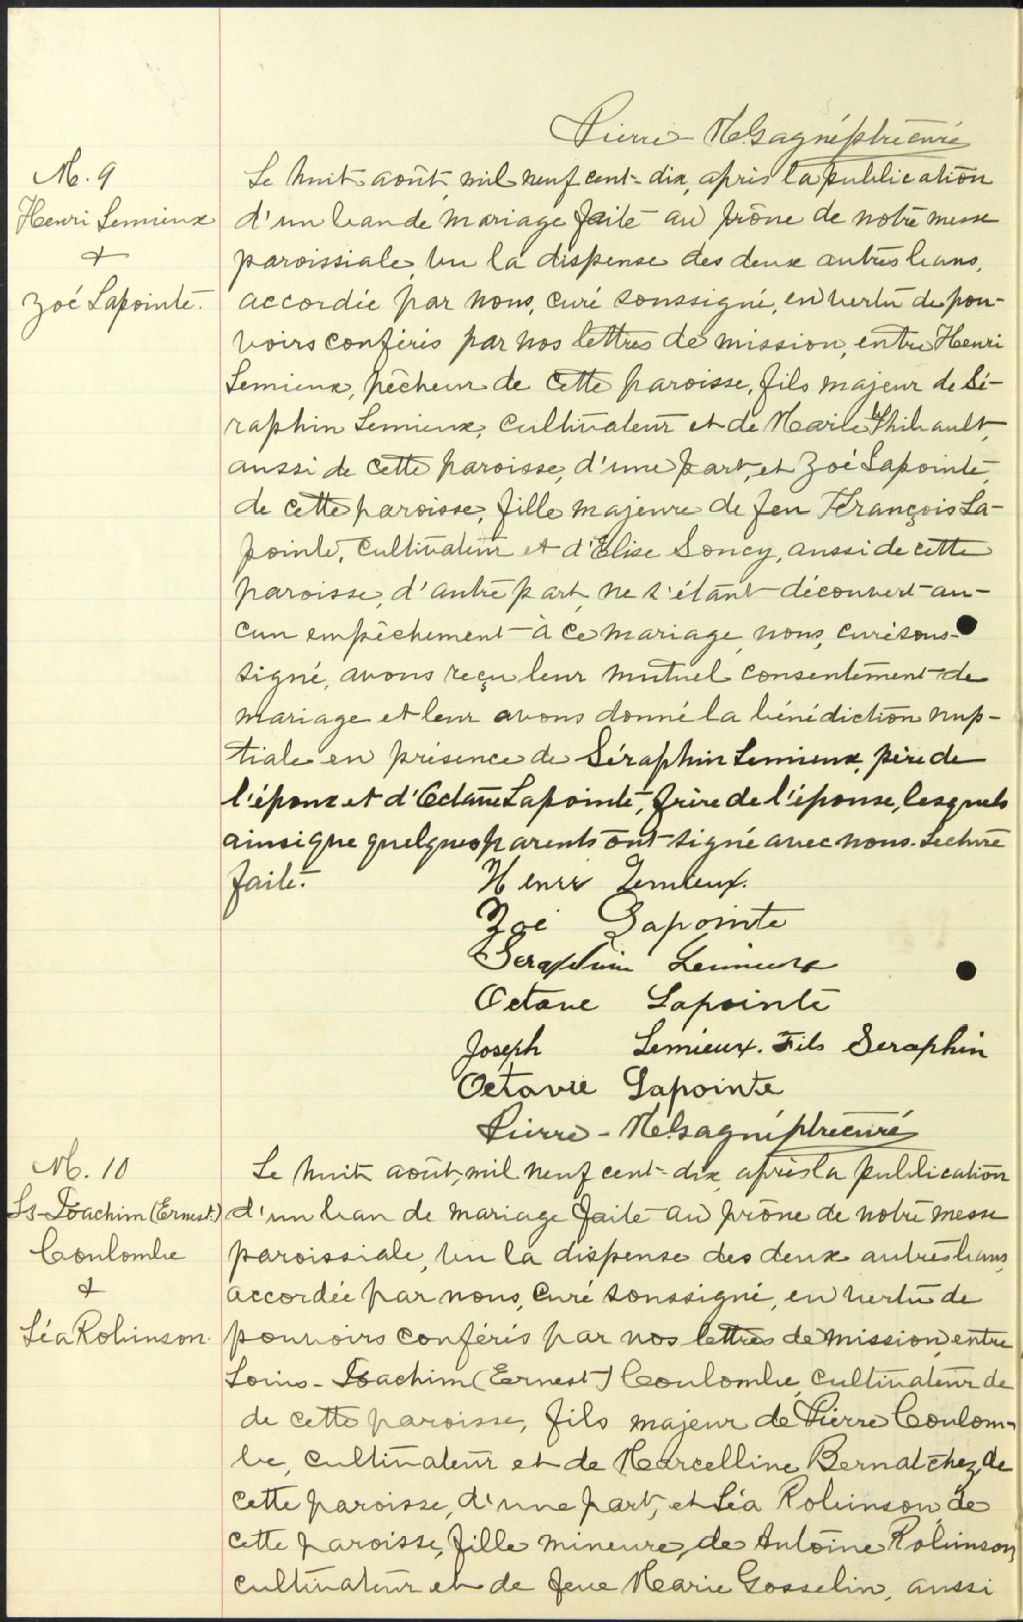 Pierre - M. Gagné ptre curé
M. 9
Henri Lemieux
&
Zoé Lapointe.
Le huit août mil neuf cent-dix, après la publication
d'un ban de mariage faite au prône de notre messe
paroissiale, vu la dispense des deux autres bans,
accordée par nous, curé soussigné, en vertu de pou-
voirs conférés par nos lettres de mission, entre Henri
Lemieux, pêcheur de cette paroisse, fils majeur de Sé-
raphin Lemieux, cultivateur et de Marie Thibault,
aussi de cette paroisse, d'une part, et Zoé Lapointe,
de cette paroisse, fille majeure de feu François La-
pointe, cultivateur et d'Elise Soucy, aussi de cette
paroisse, d'autre part, ne s'étant découvert au-
cun empêchement à ce mariage, nous, curé sous-
signé, avons reçu leur mutuel consentement de
mariage et leur avons donné la bénédiction nup-
tiale en présence de Séraphin Lemieux, père de
l'époux et d'Octave Lapointe, frère de l'épouse, lesquels
ainsi que quelques parents ont signé avec nous. Lecture
faite.
Henri Lemieux.
Zoé Lapointe
Seraphin Lemieux
Octave Lapointe
Joseph Lemieux. Fils Seraphin
Octavie Lapointe
Pierre - M. Gagné ptre curé
M. 10
Ls-Joachim (Ernest)
Coulombe
&
Léa Robinson.
Le huit août, mil neuf cent-dix, après la publication
d'un ban de mariage faite au prône de notre messe
paroissiale, vu la dispense des deux autres bans,
accordée par nous, curé soussigné, en vertu de
pouvoirs conférés par nos lettres de mission, entre
Louis-Joachim (Ernest) Coulombe, cultivateur de
de cette paroisse, fils majeur de Pierre Coulom-
be, cultivateur et de Marcelline Bernatchez, de
cette paroisse, d'une part, et Léa Robinson de
cette paroisse, fille mineure, de Antoine Robinson,
cultivateur et de feue Marie Gosselin, aussi